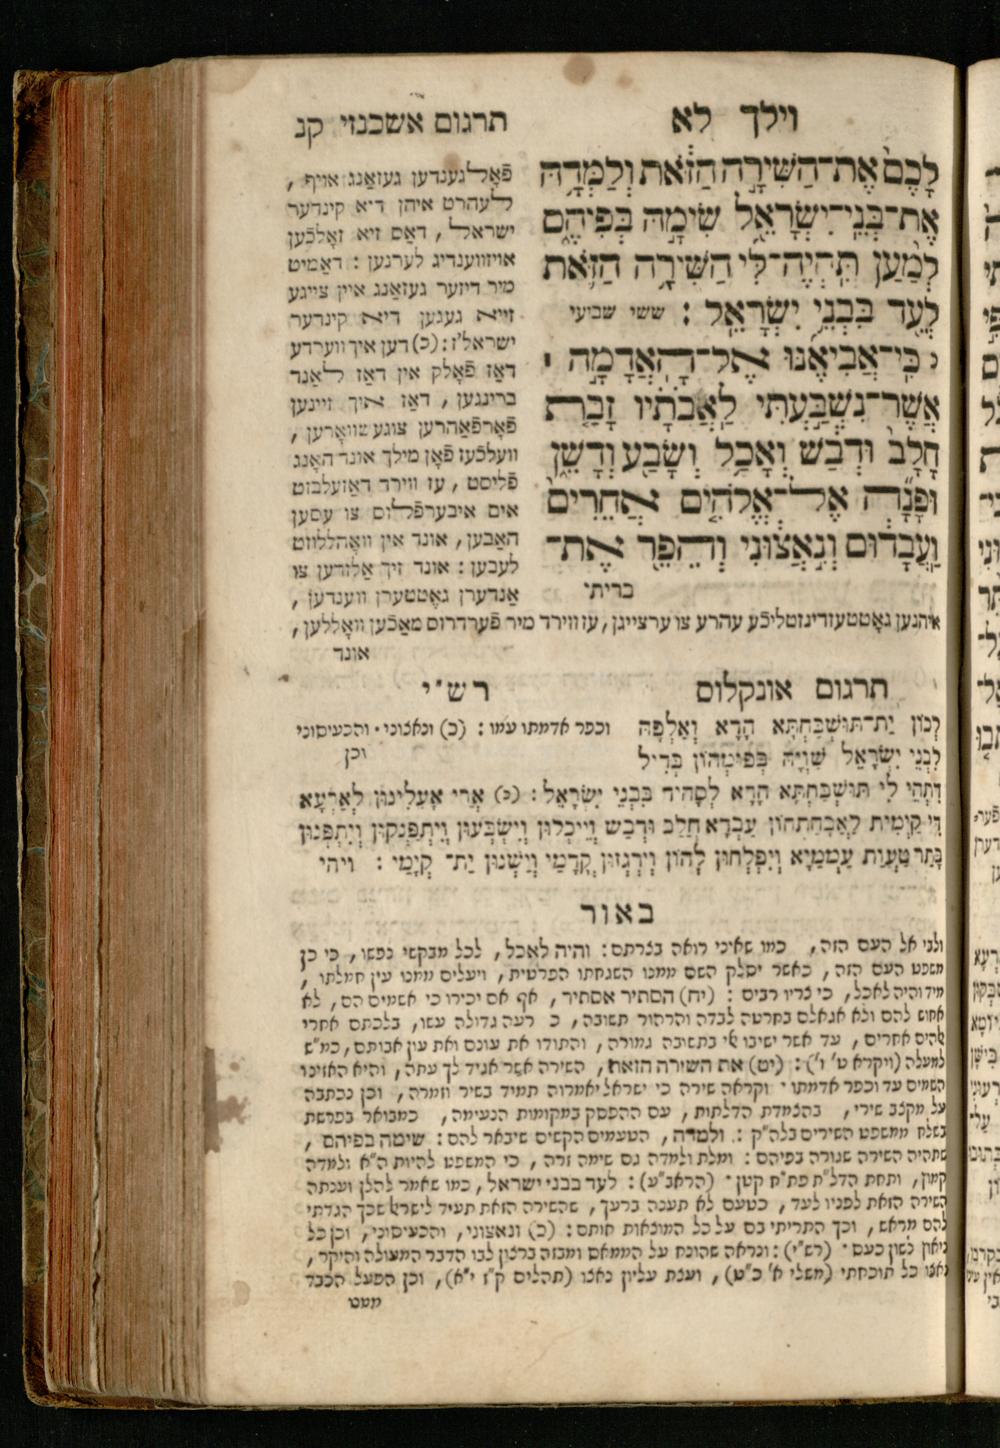 וילך לא
תרגום אשכנזי קנ
לָכֶם֙ אֶת־הַשִּׁירָ֣ה הַזֹּ֔את וְלַמְּדָ֥הּ
אֶת־בְּנֵֽי־יִשְׂרָאֵ֖ל שִׂימָ֣הּ בְּפִיהֶ֑ם
לְמַ֨עַן תִּהְיֶה־לִּ֜י הַשִּׁירָ֥ה הַזֹּ֛את
לְעֵ֖ד בִּבְנֵ֥י יִשְׂרָאֵֽל : ששי שביעי
כ כִּֽי־אֲבִיאֶ֜נּוּ אֶל־הָאֲדָמָ֣ה ׀
אֲשֶׁר־נִשְׁבַּ֣עְתִּי לַאֲבֹתָ֗יו זָבַ֤ת
חָלָב֙ וּדְבַ֔שׁ וְאָכַ֥ל וְשָׂבַ֖ע וְדָשֵׁ֑ן
וּפָנָ֞ה אֶל־אֱלֹהִ֤ים אֲחֵרִים֙
וַעֲבָד֔וּם וְנִ֣אֲצ֔וּנִי וְהֵפֵ֖ר אֶת־
בריתי
פֿאָלגענדען געזאַנג אויף ,
לעהרט איהן דיא קינדער
ישראל , דאַס זיא זאָלכֿען
אויזווענדיג לערנען : דאַמיט
מיר דיזער געזאַנג איין צייגע
זייא געגען דיא קינדער
ישראל'ז : (כ) דען איך ווערדע
דאַז פֿאָלק אין דאַז לאַנד
ברינגען , דאַז איך זיינען
פֿאָרפֿאַהרען צוגעשוואָרען ,
וועלכֿעז פֿאָן מילך אונד האָנג
פֿליסט , עז ווירד דאַזעלבזט
אים איבערפֿלוס צו עסען
האַבען , אונד אין וואָהללוזט
לעבען : אונד זיך אַלזדען צו
אַנדערן גאָטטערן ווענדען ,
איהנען גאָטטעזדינזטליכֿע עהרע צו ערצייגן , עז ווירד מיר פֿערדרוס מאַכֿען וואָללען ,
אונד
תרגום אונקלוס
לְכוֹן יַת־תּוּשְׁבַּחְתָּא הָדָא וְאַלְּפָהּ
לִבְנֵי יִשְׂרָאֵל שַׁוְיָהּ בְּפוּמְהוֹן בְּדִיל
רש״י
וכפר אדמתו עמו : (כ) ונאצוני . והכעיסוני
וכן
דִּתְהֵי לִי תּוּשְׁבַּחְתָּא הָדָא לְסָהִיד בִּבְנֵי יִשְׂרָאֵל : (כ) אֲרֵי אָעֵלִינוּן לְאַרְעָא
דִּי קַיְמִית לַאֲבָהָתְהוֹן עָבְדָא חֲלַב וּדְבַשׁ וְיֵיכְלוּן וְיִשְׂבְּעוּן וְיִתְפַּנְּקוּן וְיִתְפְּנוּן
בָּתַר טָעֲוַת עַמְמַיָּא וְיִפְלְחוּן לְהוֹן וְיַרְגְּזוּן קֳדָמַי וְיַשְׁנוּן יַת־ קְיָמִי : ויהי
באור
ולבי אל העם הזה , כמו שאיני רואה בצרתם : והיה לאכל , לכל מבקשי נפשו , כי כן
משפט העם הזה , כאשר יסלק השם ממנו השגחתו הפרטית , ויעלים ממנו עין חמלתו ,
מיד והיה לאכל , כי צריו רבים : (יח) הסתיר אסתיר , אף אם יכירו כי אשמים הם , לא
אחוש להם ולא אגאלם בחרטה לבדה והרהור תשובה , כ רעה גדולה עשו , בלכתם אחרי
אלהים אחרים , עד אשר ישיבו אלי בתשובה גמורה , והתודו את עונם ואת עון אבותם , כמ״ש
למעלה (ויקרא ט' ו') : (יט) את השירה הזאת , השירה אשר אגיד לך עתה , והיא האזינו
השמים עד וכפר אדמתו . וקראה שירה כי ישראל יאמרוה תמיד בשיר וזמרה , וכן נכתבה
על מקצב שירי , בהצמדת הדלתות , עם ההפסק במקומות הנעימה , כמבואר בפרשת
בשלח ממשפט השירים בלה״ק : . ולמדה , הטעמים הקשים שיבאר להם : שימה בפיהם ,
שתהיה השירה שגורה בפיהם : ומלת ולמדה גם שימה זרה , כי המשפט להיות ה״א ולמדה
קמוץ , ותחת הדל״ת פת״ח קטן . (הראב״ע) : לעד בבני ישראל , כמו שאמר להלן וענתה
השירה הזאת לפניו לעד , כטעם לא תענה ברעך , שהשירה הזאת תעיד לישראל שכך הגדתי
להם מראש , וכך התריתי בם על כל המוצאות אותם : (כ) ונאצוני , והכעיסוני , וכן כל
ניאוץ לשון כעס . (רש״י) : ונראה שהונח על הממאס ומבזה ברצון לבו הדבר המעולה והיקר ,
נאצו כל תוכחתי (משלי א' כ״ט) , ועצת עליון נאצו (תהלים ק״ז י״א) , וכן הפעל הכבד
ממנו